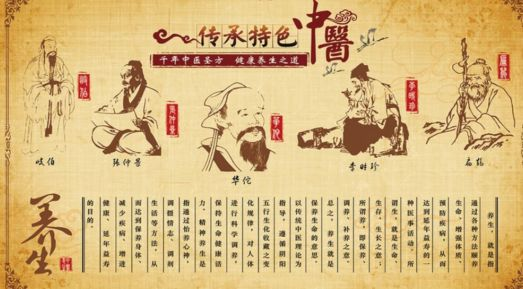 传承特色
中醫
千年中医圣方 健康养生之道
華佗
岐伯
张仲景
华佗
李时珍
扁鹊
养生
养生,就是
通过各种方法颐养
生命、增强体质、
预防疾病,从而
达到延年益寿的一
种医事活动。所
谓生,就是生命、
生存、生长之意;
所谓养,即保养、
调养、补养之意。
总之,养生就是
保养生命的意思。
以传统中医理论为
指导,遵循阴阳
五行生化收藏之变
化规律,对人体
进行科学调养,
保持生命健康活
力。精神养生是
指通过怡养心神,
调摄情志、调剂
生活等方法,从
而达到保养身体、
减少疾病、增进
健康、延年益寿
的目的。